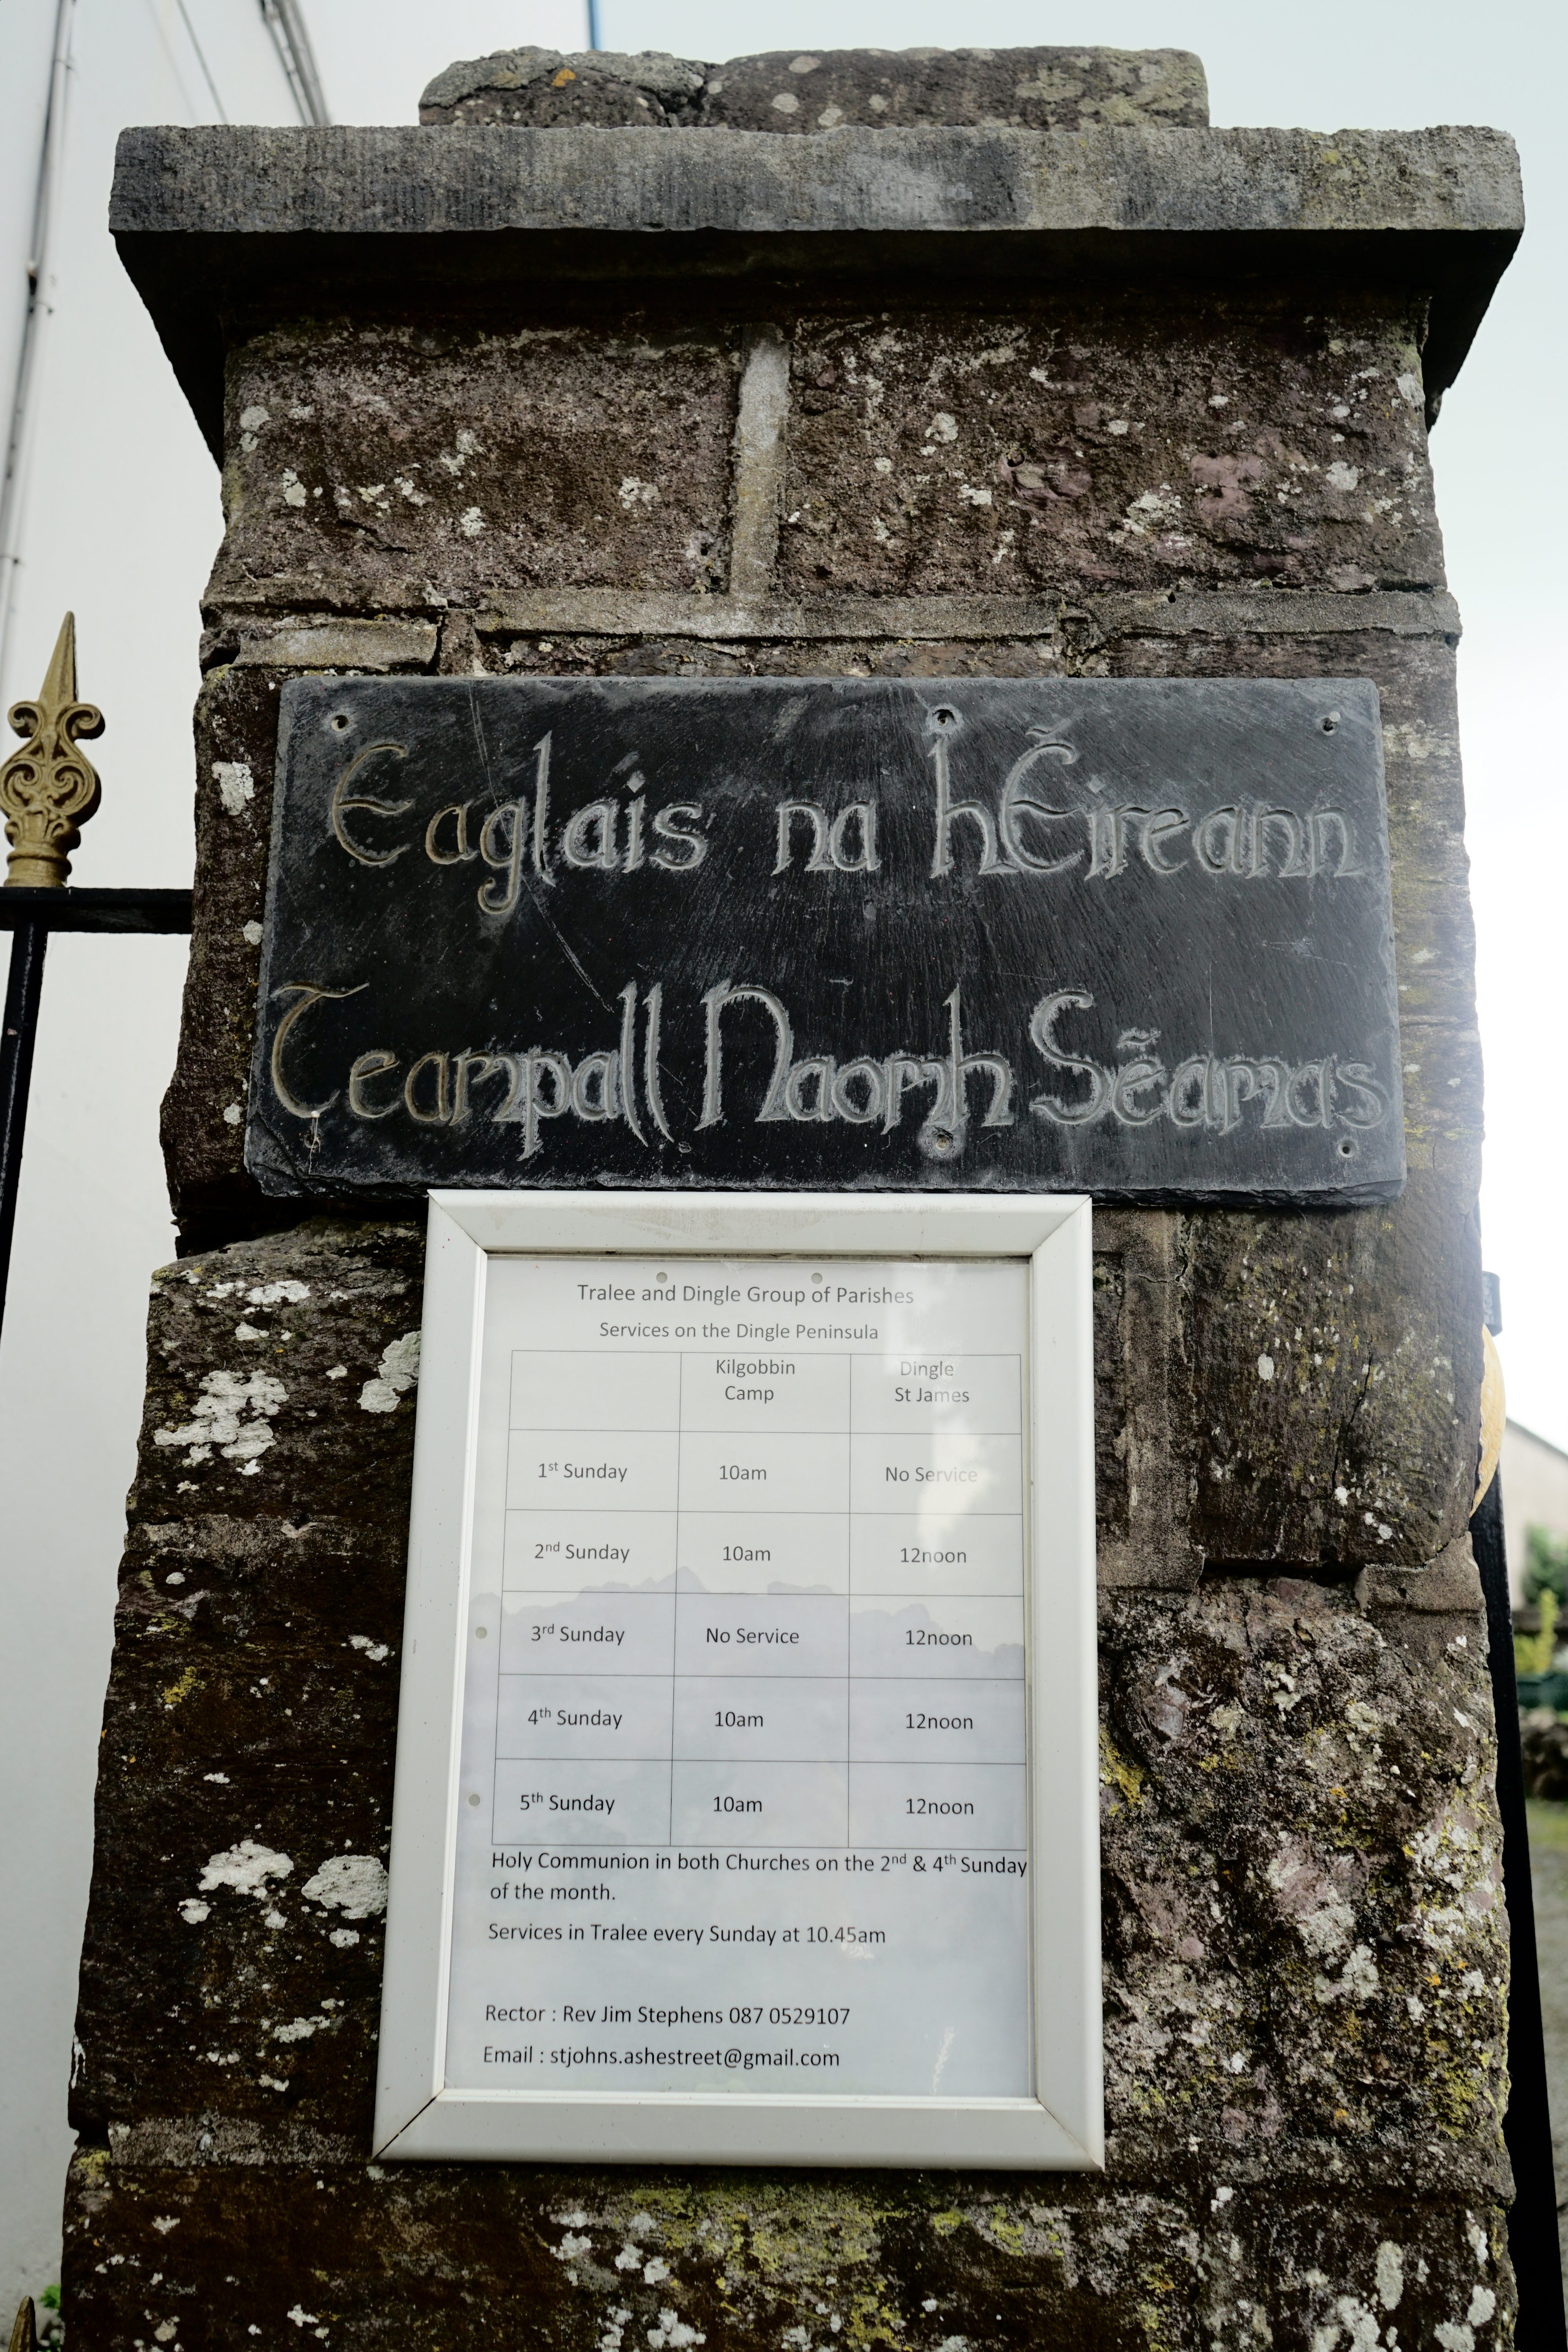 Eaglais na hÉireann
Teampall Naomh Séamas
Tralee and Dingle Group of Parishes
Services on the Dingle Peninsula
Kilgobbin Dingle
Camp St James
1st Sunday 10am No Service
2nd Sunday 10am 12noon
3rd Sunday No Service 12noon
4th Sunday 10am 12noon
5th Sunday 10am 12noon
Holy Communion in both Churches on the 2nd & 4th Sunday
of the month.
Services in Tralee every Sunday at 10.45am
Rector : Rev Jim Stephens 087 0529107
Email : stjohns.ashestreet@gmail.com